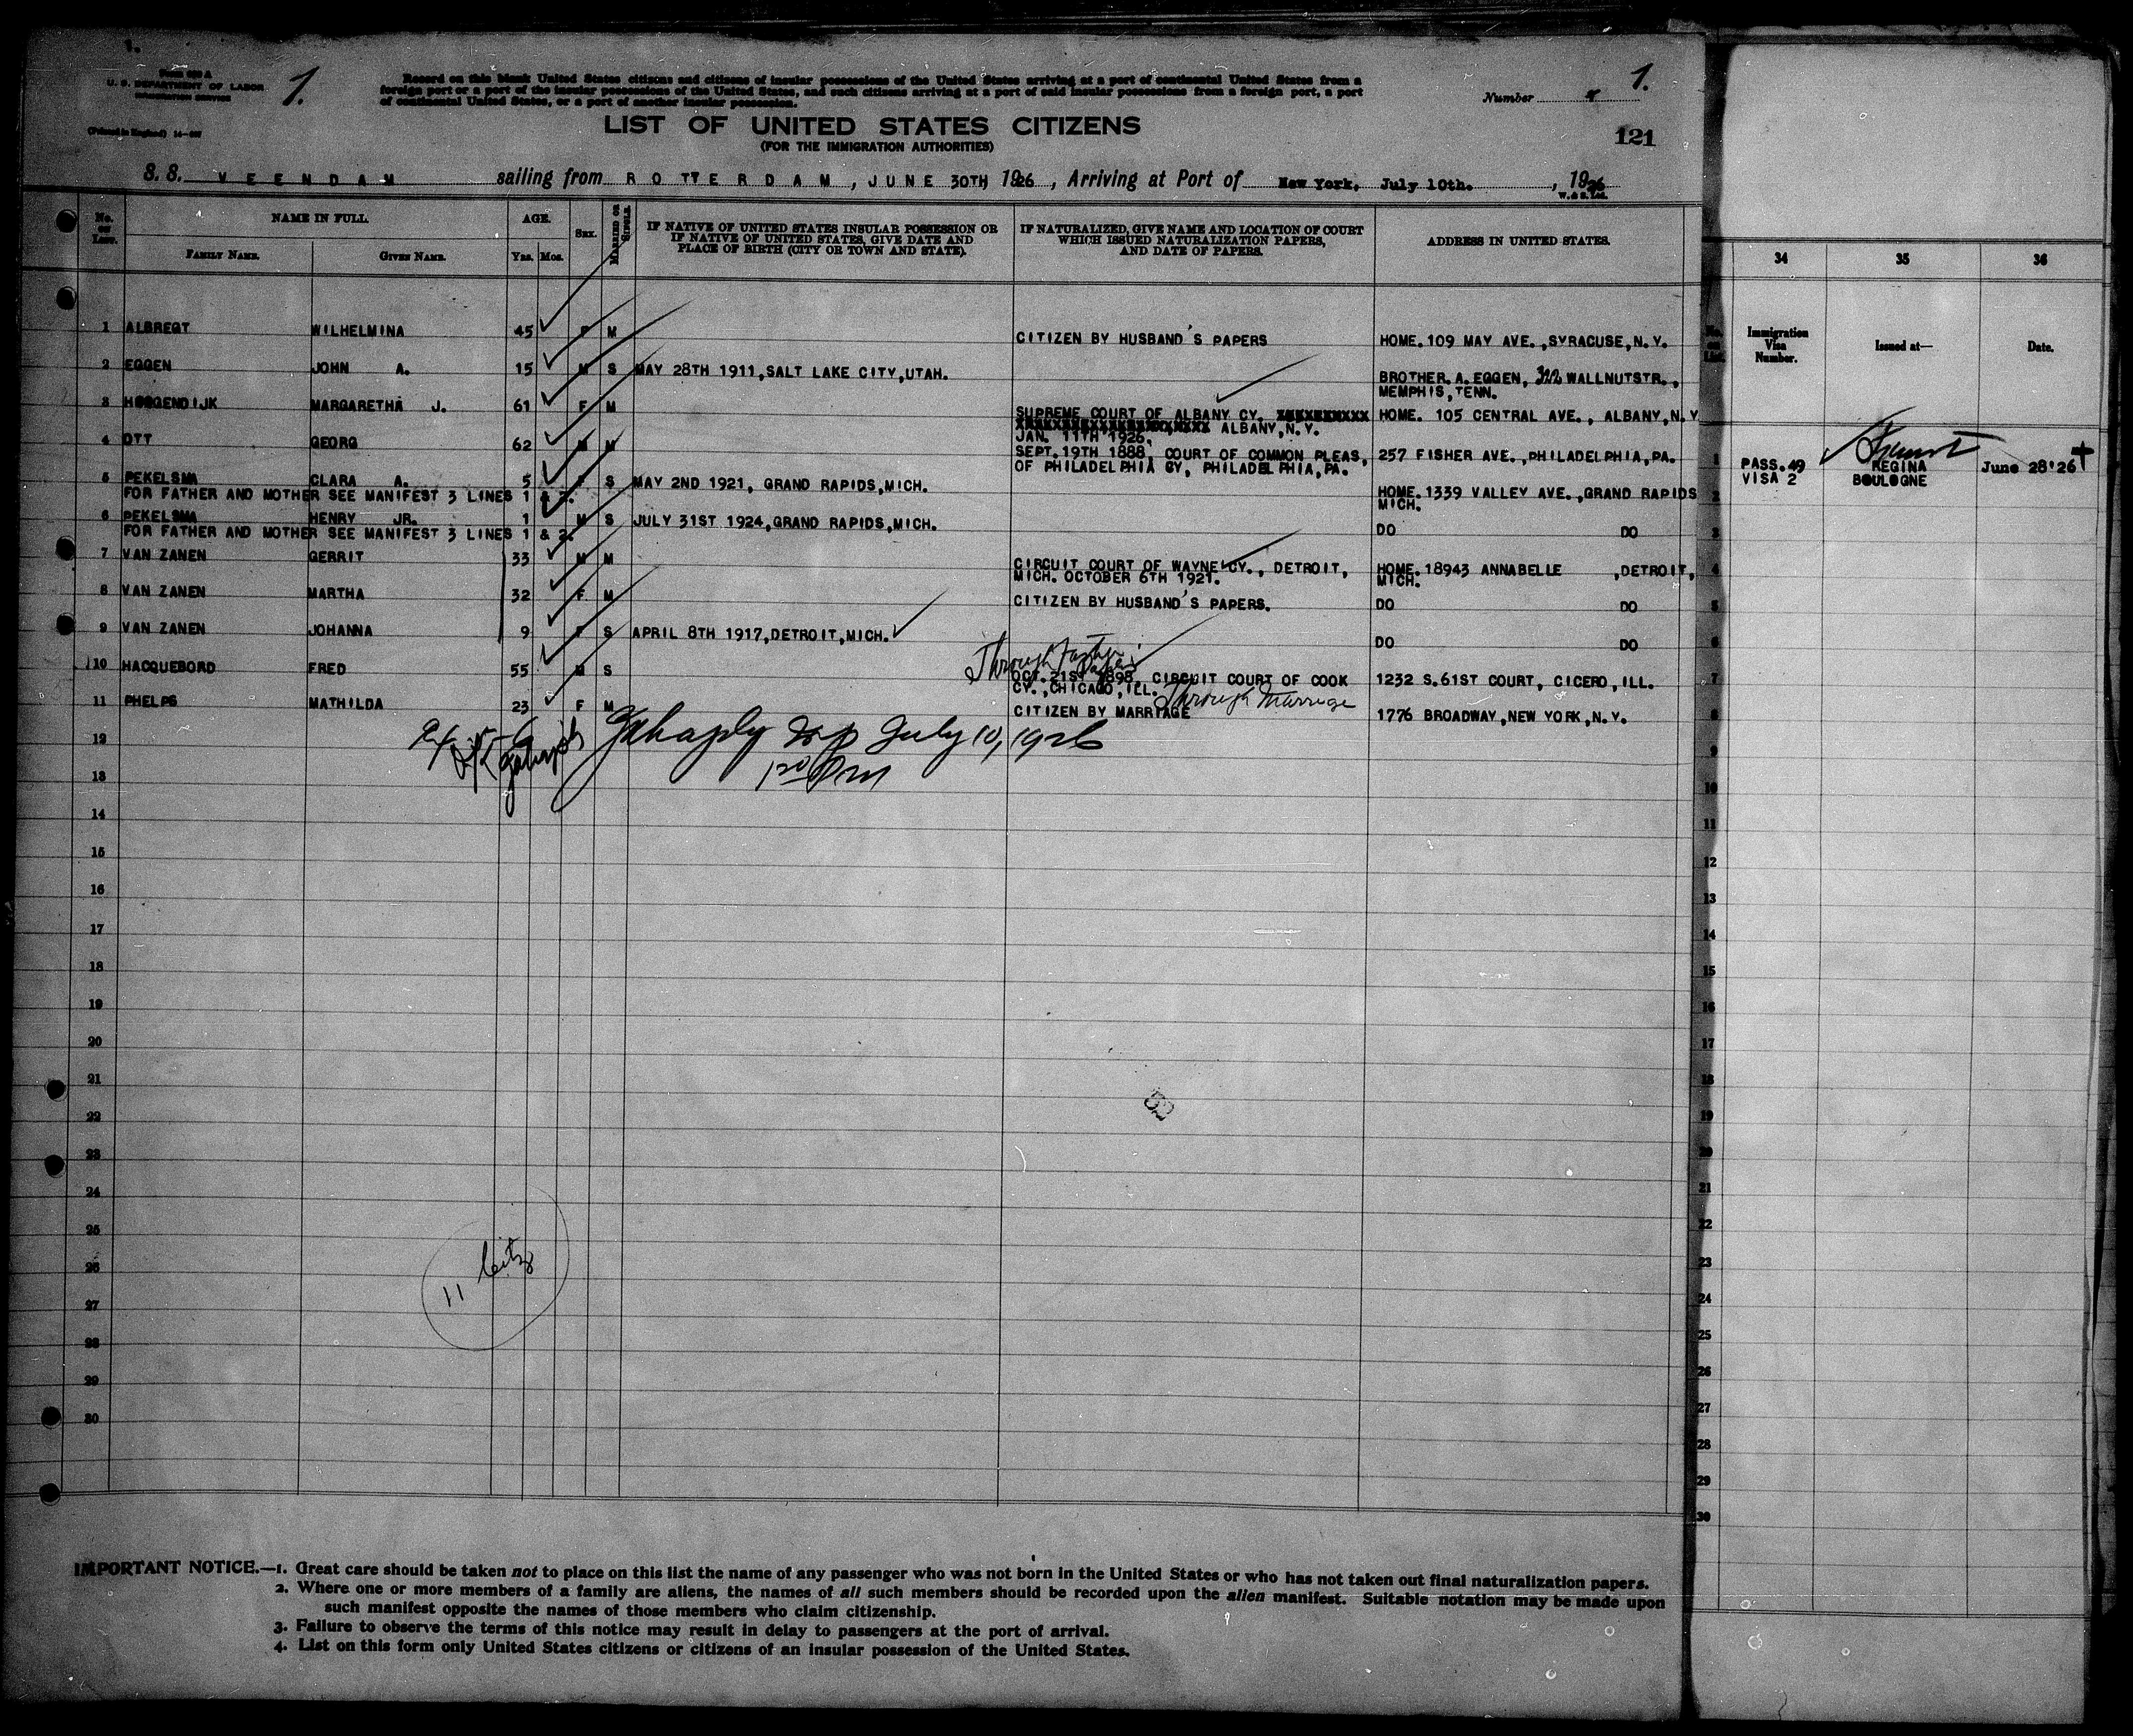 1.
Form 630 A
U. S. DEPARTMENT OF LABOR
IMMIGRATION SERVICE
(Printed in England)
1.
Record on this blank United States citizens and citizens of insular possessions of the United States arriving at a port of continental United States from a
foreign port or a port of the insular possessions of the United States, and such citizens arriving at a port of said insular possessions from a foreign port, a port
of continental United States, or a port of another insular possession.
Number 1.
LIST OF UNITED STATES CITIZENS
(FOR THE IMMIGRATION AUTHORITIES)
121
S. S. VEENDAM sailing from ROTTERDAM, JUNE 30TH 1926, Arriving at Port of New York, July 10th. , 1926
W. & S. Ltd.
No. on List. NAME IN FULL. AGE. Sex. Married or Single. IF NATIVE OF UNITED STATES INSULAR POSSESSION OR IF NATIVE OF UNITED STATES, GIVE DATE AND PLACE OF BIRTH (CITY OR TOWN AND STATE). IF NATURALIZED, GIVE NAME AND LOCATION OF COURT WHICH ISSUED NATURALIZATION PAPERS, AND DATE OF PAPERS. ADDRESS IN UNITED STATES.
Family Name. Given Name. Yrs. Mos.
1 ALBREGT WILHELMINA 45 F M CITIZEN BY HUSBAND'S PAPERS HOME. 109 MAY AVE., SYRACUSE, N.Y.
2 EGGEN JOHN A. 15 M S MAY 28TH 1911, SALT LAKE CITY, UTAH. BROTHER. A. EGGEN, 322 WALLNUTSTR.,
MEMPHIS, TENN.
3 HOOGENDIJK MARGARETHA J. 61 F M SUPREME COURT OF ALBANY CY. HOME. 105 CENTRAL AVE., ALBANY, N.Y
ALBANY, N.Y.
JAN. 11TH 1926.
4 OTT GEORG 62 M M SEPT. 19TH 1888, COURT OF COMMON PLEAS, 257 FISHER AVE., PHILADELPHIA, PA.
OF PHILADELPHIA CY, PHILADELPHIA, PA.
5 PEKELSMA CLARA A. 5 F S MAY 2ND 1921, GRAND RAPIDS, MICH. HOME. 1339 VALLEY AVE., GRAND RAPIDS
MICH.
FOR FATHER AND MOTHER SEE MANIFEST 3 LINES 1 & 2.
6 PEKELSMA HENRY JR. 1 M S JULY 31ST 1924, GRAND RAPIDS, MICH. DO DO
FOR FATHER AND MOTHER SEE MANIFEST 3 LINES 1 & 2.
7 VAN ZANEN GERRIT 33 M M CIRCUIT COURT OF WAYNE CY., DETROIT, HOME. 18943 ANNABELLE ,DETROIT,
MICH. OCTOBER 6TH 1921. MICH.
8 VAN ZANEN MARTHA 32 F M CITIZEN BY HUSBAND'S PAPERS. DO DO
9 VAN ZANEN JOHANNA 9 F S APRIL 8TH 1917, DETROIT, MICH. DO DO
Through father's Papers
10 HACQUEBORD FRED 55 M S OCT. 21ST 1898, CIRCUIT COURT OF COOK 1232 S. 61ST COURT, CICERO, ILL.
CY., CHICAGO, ILL. Through Marriage
11 PHELPS MATHILDA 23 F M CITIZEN BY MARRIAGE 1776 BROADWAY, NEW YORK, N.Y.
12
July 10, 1926
13
14
15
16
17
18
19
20
21
22
23
24
25
26
27
28
29
30
52
11 Citz
34 35 36
No. on List. Immigration Visa Number. Issued at— Date.
1 PASS. 49 REGINA June 28'26
VISA 2 BOULOGNE
2
3
4
5
6
7
8
9
10
11
12
13
14
15
16
17
18
19
20
21
22
23
24
25
26
27
28
29
30
IMPORTANT NOTICE.—1. Great care should be taken not to place on this list the name of any passenger who was not born in the United States or who has not taken out final naturalization papers.
2. Where one or more members of a family are aliens, the names of all such members should be recorded upon the alien manifest. Suitable notation may be made upon
such manifest opposite the names of those members who claim citizenship.
3. Failure to observe the terms of this notice may result in delay to passengers at the port of arrival.
4. List on this form only United States citizens or citizens of an insular possession of the United States.